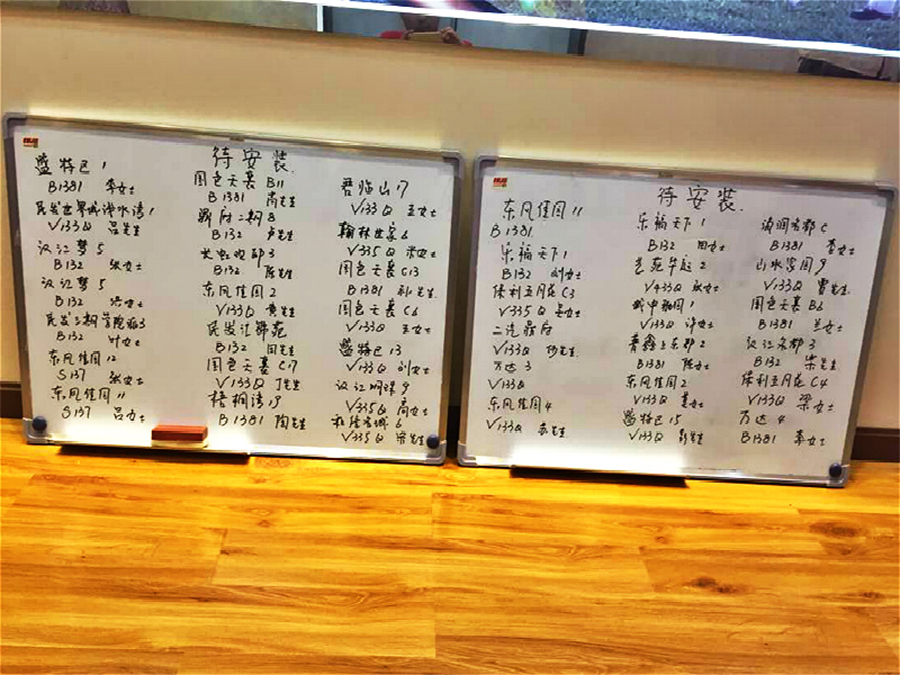 待安装
盛特区1
B1381 李女士
民发世界城浅水湾1
V133Q 吕先生
汉江梦5
B132 张女士
汉江梦5
B132
民发
B132 叶女士
东风佳园12
S137 张女士
东风佳园11
S137 吕女士
国色天襄B11
B1381 尚先生
B132 卢先生
B132 陈先生
东风佳园2
V133Q 黄先生
民发江锦苑
B132 周先生
国色天襄C17
V133Q 丁先生
梧桐湾13
B1381 陶先生
君临山17
V133Q 王女士
翰林世家6
V335Q 宋女士
国色天襄C13
B1381 孙先生
国色天襄C6
V133Q 王女士
盛特区13
V133Q 刘女士
汉江明珠9
V335Q 高女士
V335Q 宋先生
待安装
东风佳园11
B1381
乐福天下1
B132 刘女士
保利五月花C3
V335Q 王女士
二汽
V133Q 何先生
万达3
V133Q
东风佳园4
V133Q 齐先生
乐福天下1
B132 田女士
艺苑华庭2
V433Q 张女士
V133Q 许女士
B1381 陈女士
东风佳园2
V133Q 姜女士
盛特区15
V133Q 彭先生
B1381 李女士
山水家园9
V133Q 曹先生
国色天襄B6
B1381 兰女士
汉江
B132 宋先生
保利五月花C4
V133Q 梁女士
万达4
B1381 李女士